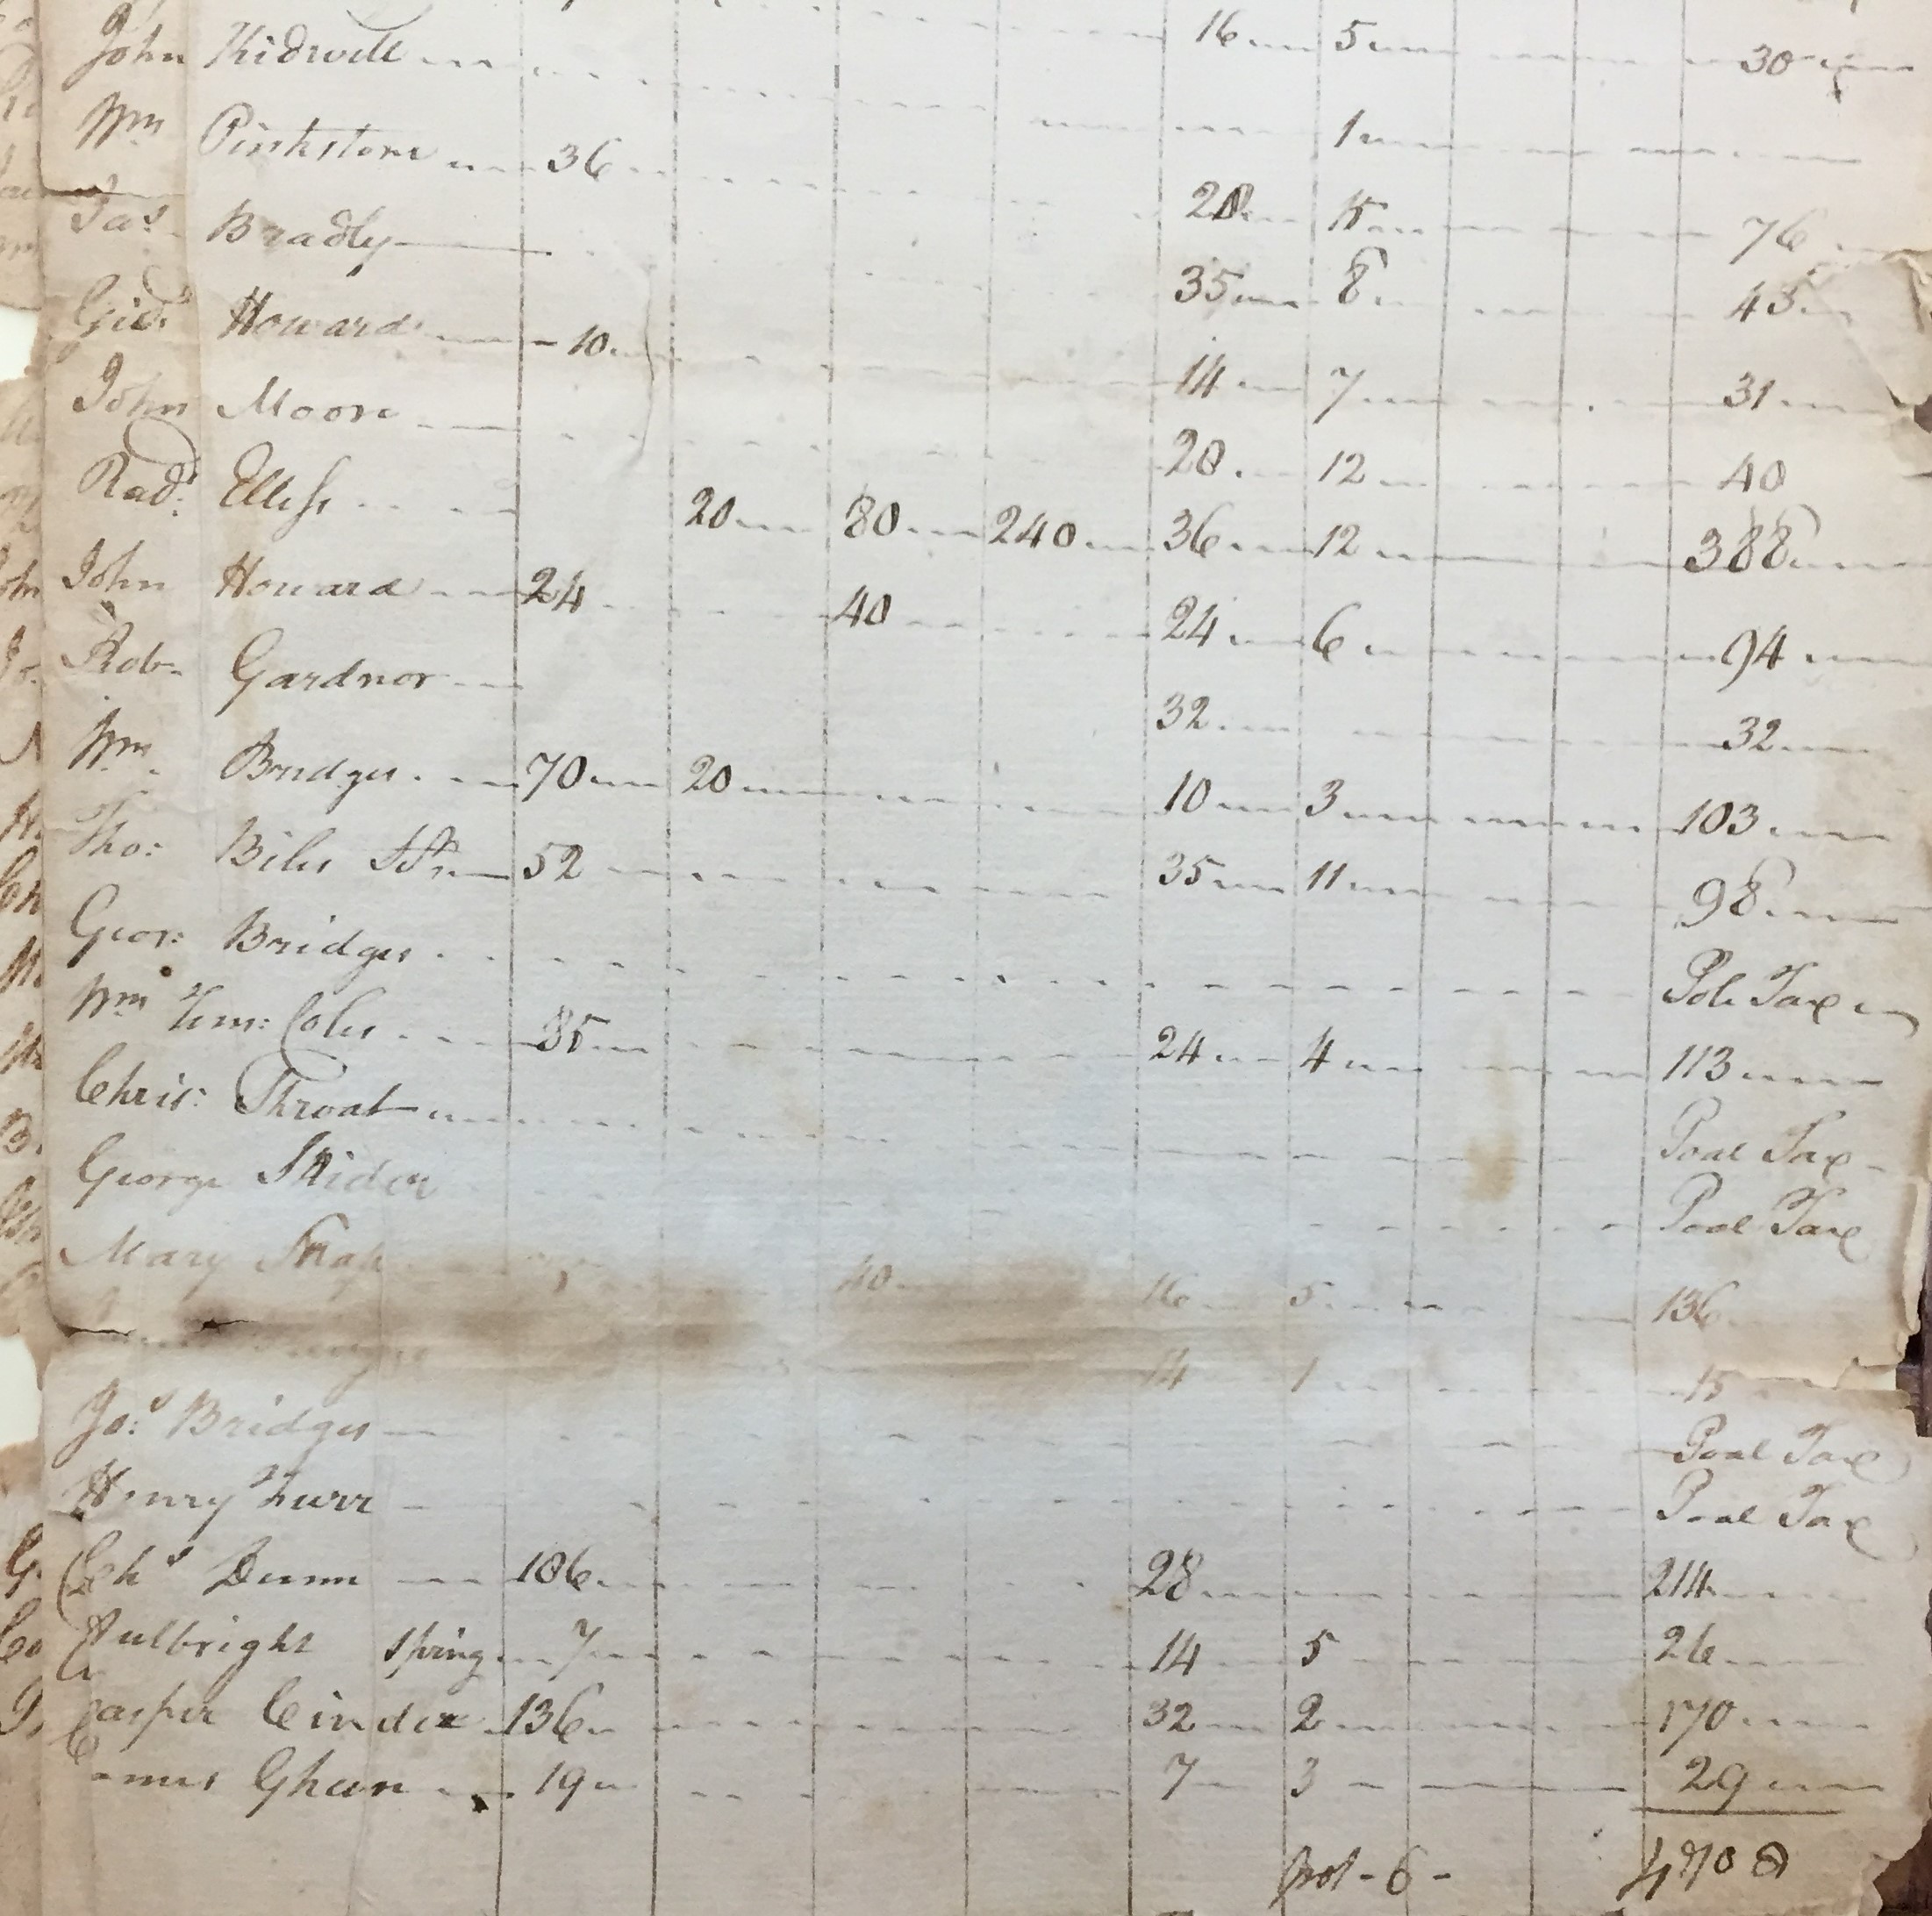 John Kidwell 16 5 30
Wm Pinkstone 36 1
Jas Bradly 28 15 76
Gid: Howard 10 35 8 43
John Moore 14 7 31
Rad: Elliss 20 12 40
John Howard 24 20 80 240 36 12 388
Rob. Gardnor 40 24 6 94
Wm Bridges 70 20 32 32
Tho: Biles Sr. 52 10 3 103
Geor: Bridges 35 11 98
Wm Tem: Coles 35 Pole Tax
Chris: Throat 24 4 113
George Poal Tax
Mary Snap 40 Poal Tax
16 5 136
14 1 15
Jos: Bridges Poal Tax
Henry Furr Poal Tax
Chs Dunn 186 28 214
Fulbright Spring 7 14 5 26
Casper Cinder 136 32 2 170
Ghun 19 7 3 29
pol - 6 - 4708